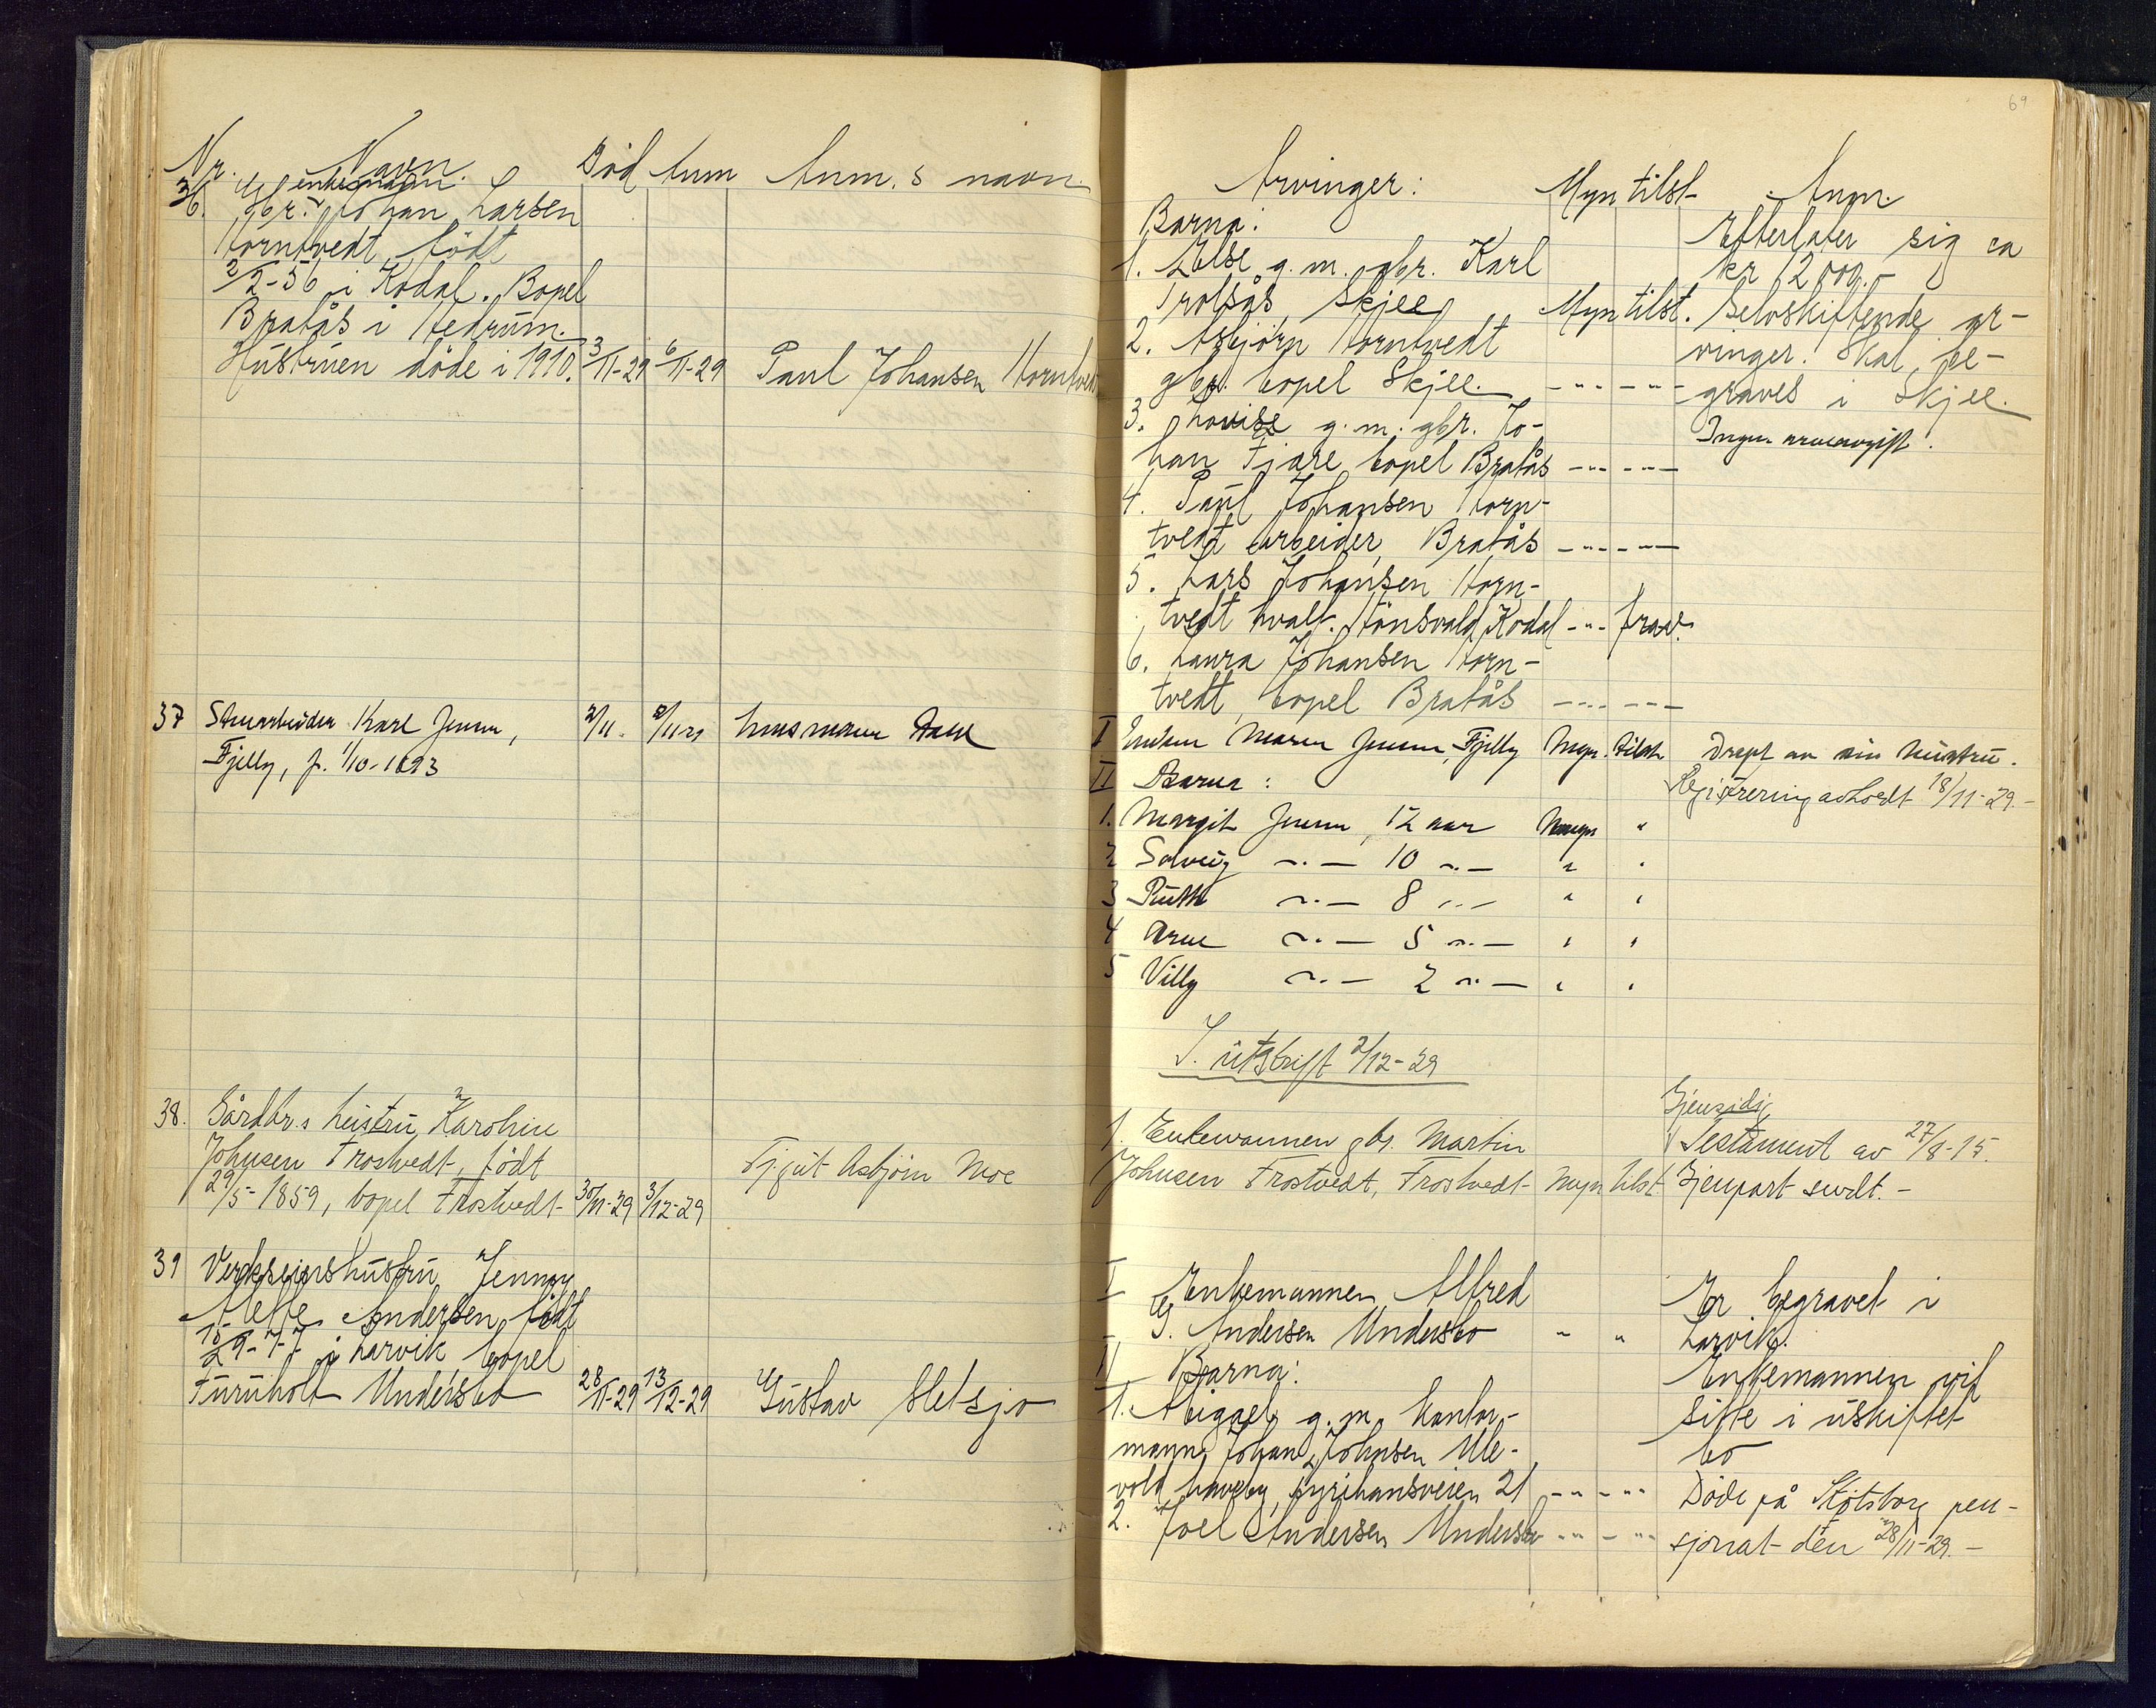 Nr. Navn. Död Anm Anm. s navn.
36. enkemann
gbr. Johan Larsen
Horntvedt, födt
2/2-56 i Kodal. Bopel
Bratås i Hedrum.
Hustruen döde i 1910. 3/11-29 6/11-29 Paul Johansen Horntvedt
37 Karl Jensen,
Fjelly, f. 1/10-1893
2/11. Lensmann
38. Gårdbr.s hustru Karoline
Johnsen Trostvedt, födt
29/5-1859, bopel Trostvedt 30/11-29 3/12-29 Asbjörn Moe
39 Verkseiershustru Jenny
Andersen, födt
i Larvik bopel
Furuholt Undersbo 28/11-29 13/12-29 Gustav Sletsjo
69
Arvinger: Myn tilst Anm.
Barna:
1. Else g. m. gbr. Karl
Trolsås, Skjee Myn tilst.
2. Asbjörn Horntvedt
gbr. bopel Skjee.
3. Lovise g. m. gbr. Jo-
han Fjære bopel Bratås
4. Paul Johansen Horn-
tvedt arbeider, Bratås
5. Lars Johansen Horn-
tvedt hvalf. Hönsvald, Kodal -"- frav.
6. Laura Johansen Horn-
tvedt, bopel Bratås
Efterlater sig ca
kr 12 000.-
Selvskiftende ar-
vinger. Skal be-
graves i Skjee.
Ingen arveavgift.
I Enken Maren Jensen, Fjelly Myn. tilst. Drept av sin hustru.
II Barna: Registrering avholdt 18/11-29.-
1. Margit Jensen, 12 aar Umyn "
2 Solveig -"- 10 -"- " "
3 Ruth -"- 8 -"- " "
4 Arne -"- 5 -"- " "
5 Villy -"- 2 -"- " "
S. utskrift 2/12-29
1. Enkemannen gbr. Martin
Johnsen Trostvedt, Trostvedt Myn tilst
Gjensidig
Testament av 27/8-15.
Gjenpart sendt.-
I Enkemannen Alfred
G. Andersen Undersbo " "
II Barna:
1. Abigael g. m. kontor-
mann Johan Johnsen Ule-
vold haveby, Pyrihansveien 21 -"- -"-
2. Joel Andersen Undersbo -"- -"-
Er begravet i
Larvik.
Enkemannen vil
sitte i uskiftet
bo
Döde på Slötsborg pen-
sjonat den 28/11-29.-